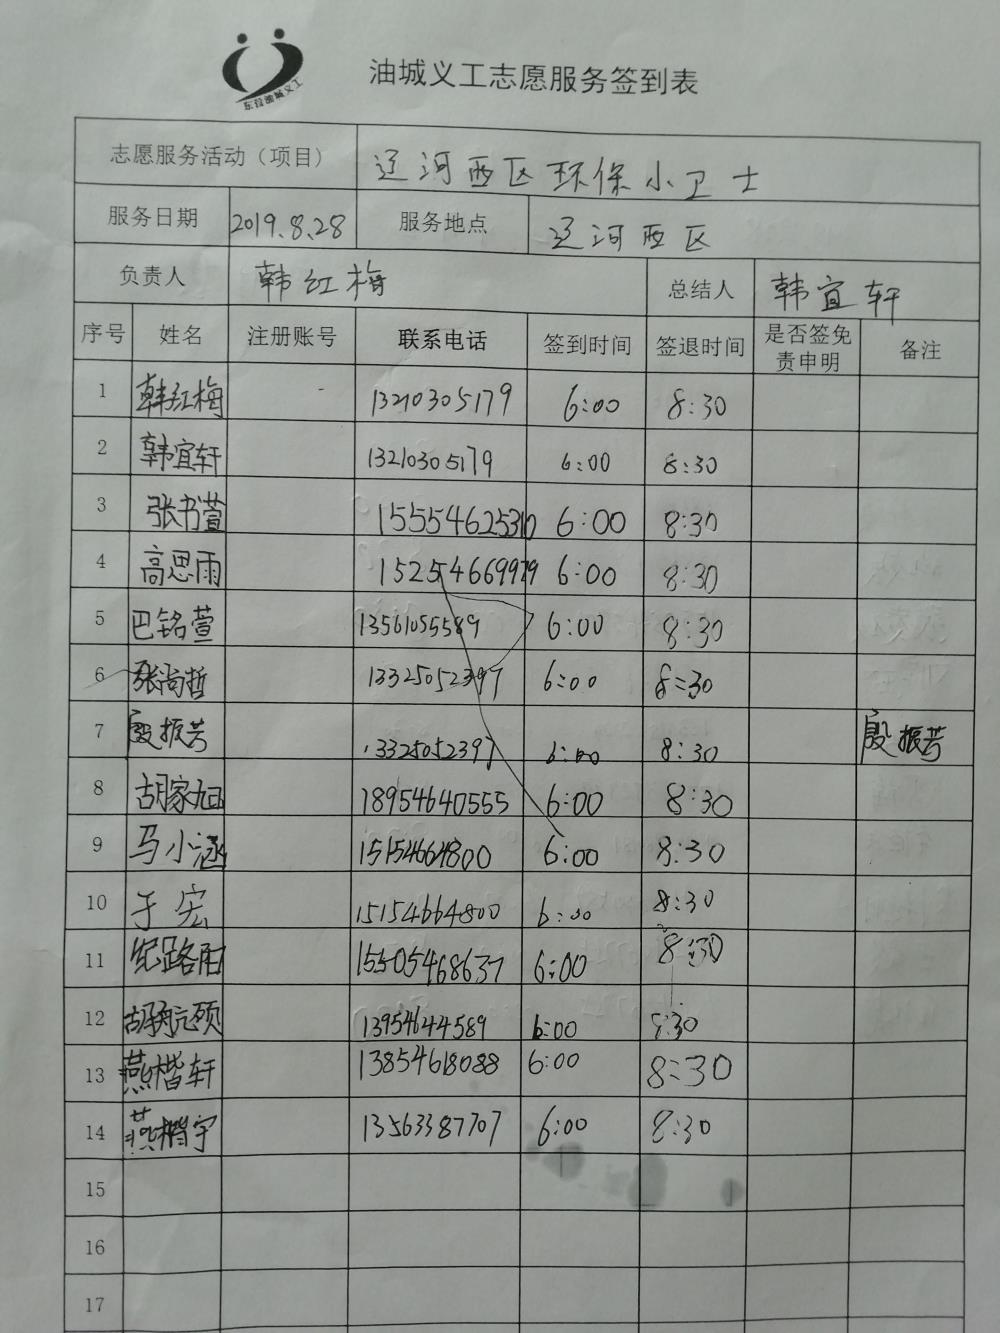 东营油城义工
油城义工志愿服务签到表
志愿服务活动（项目） 辽河西区环保小卫士
服务日期 2019.8.28 服务地点 辽河西区
负责人 韩红梅 总结人 韩宜轩
序号 姓名 注册账号 联系电话 签到时间 签退时间 是否签免责申明 备注
1 韩红梅 13210305179 6:00 8:30
2 韩宜轩 13210305179 6:00 8:30
3 张书萱 15554625310 6:00 8:30
4 高思雨 15254669979 6:00 8:30
5 巴铭萱 13561055589 6:00 8:30
6 张尚哲 13325052397 6:00 8:30
7 殷振芳 13325052397 6:00 8:30 殷振芳
8 胡家 18954640555 6:00 8:30
9 马小涵 15154664800 6:00 8:30
10 于宏 15154664800 6:00 8:30
11 纪路阳 15505468637 6:00 8:30
12 13954644589 6:00 8:30
13 燕楷轩 13854618088 6:00 8:30
14 燕楷宇 13563387707 6:00 8:30
15
16
17